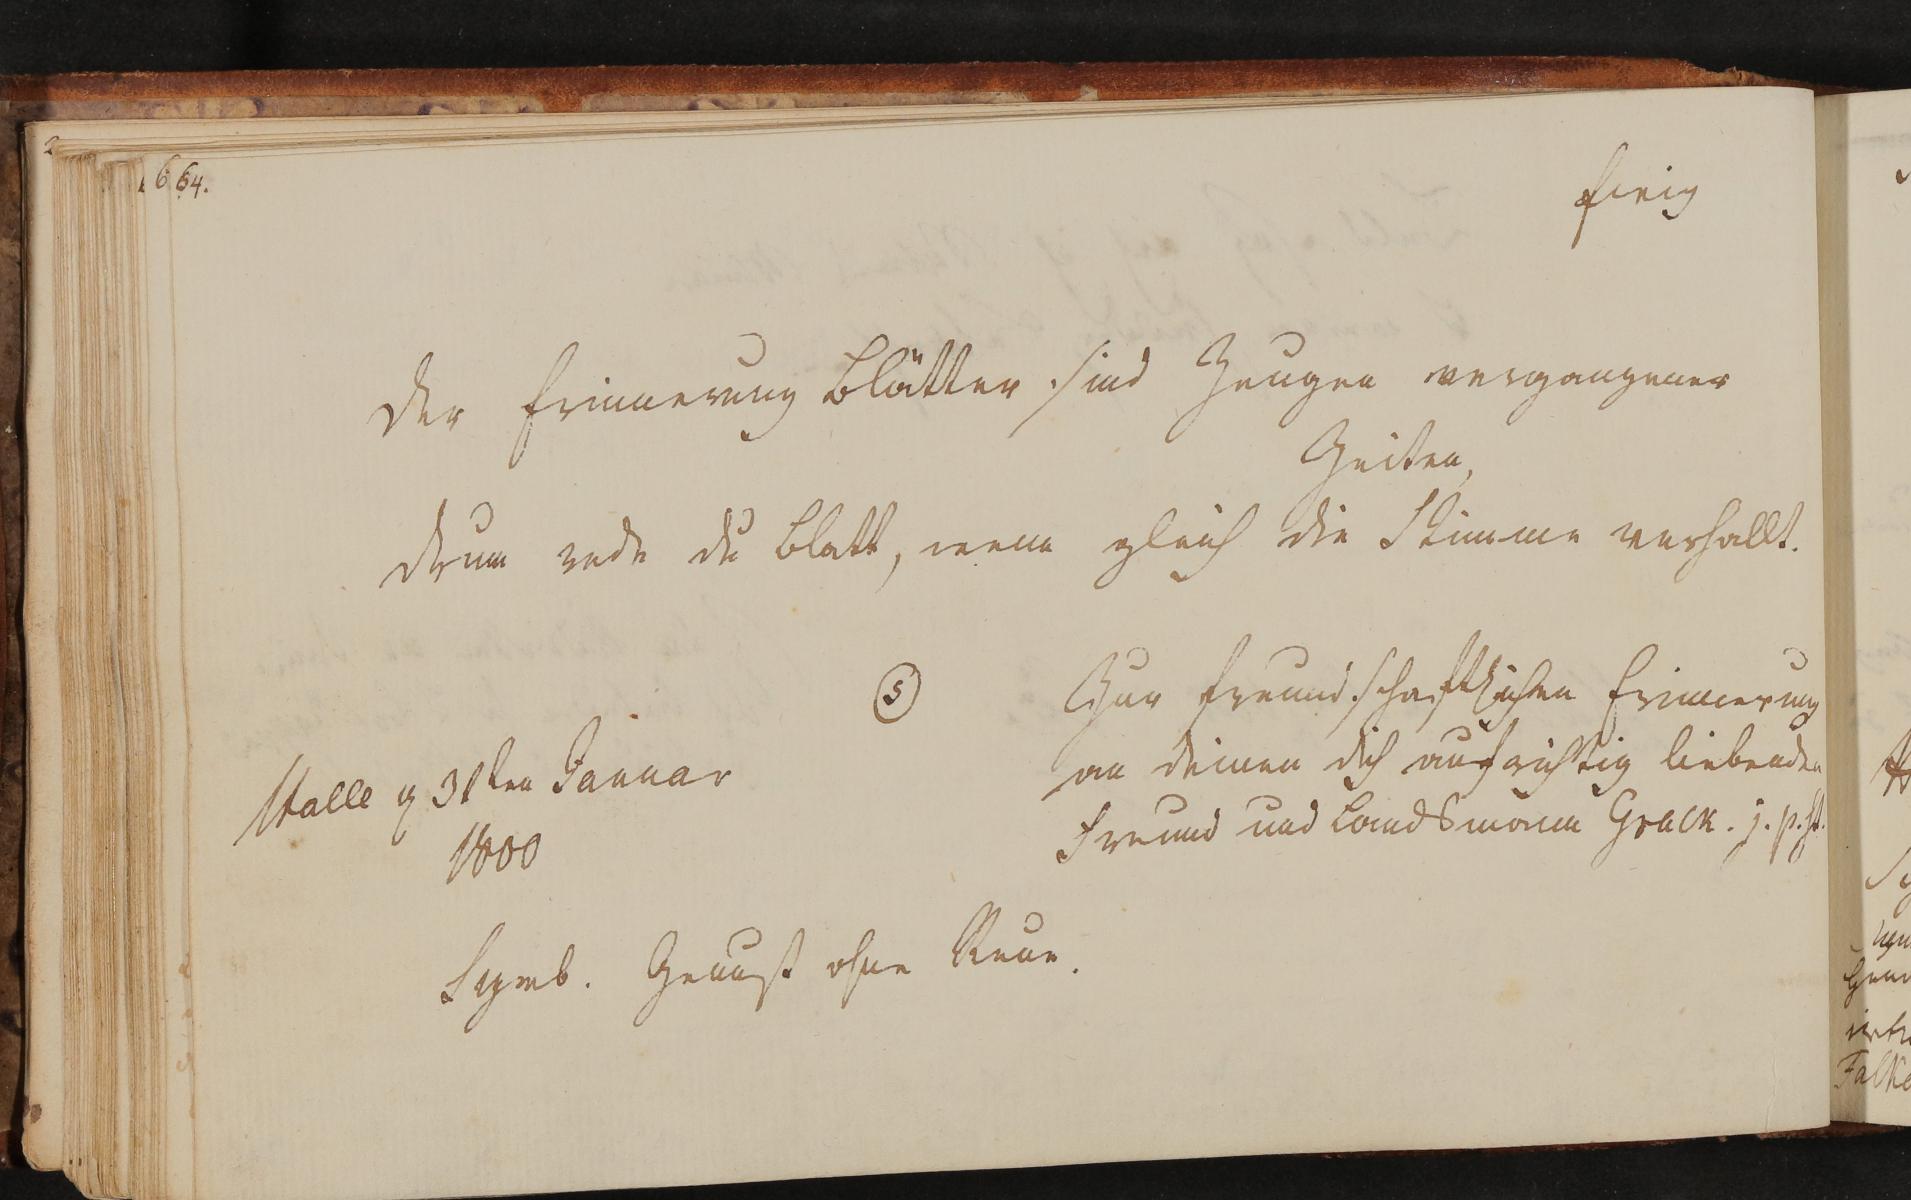 64.
Ewig
Der Erinnerung Blätter sind Zeugen vergangener
Zeiten,
Drum rede du Blatt, wenn gleich die Stimme verhallt.
Zur freundschaftlichen Erinnerung
an deinen dich aufrichtig liebenden
Freund und Landsmann Grack. j.
Halle 31ten Januar
1800
Symb. Genuß ohne Reue.